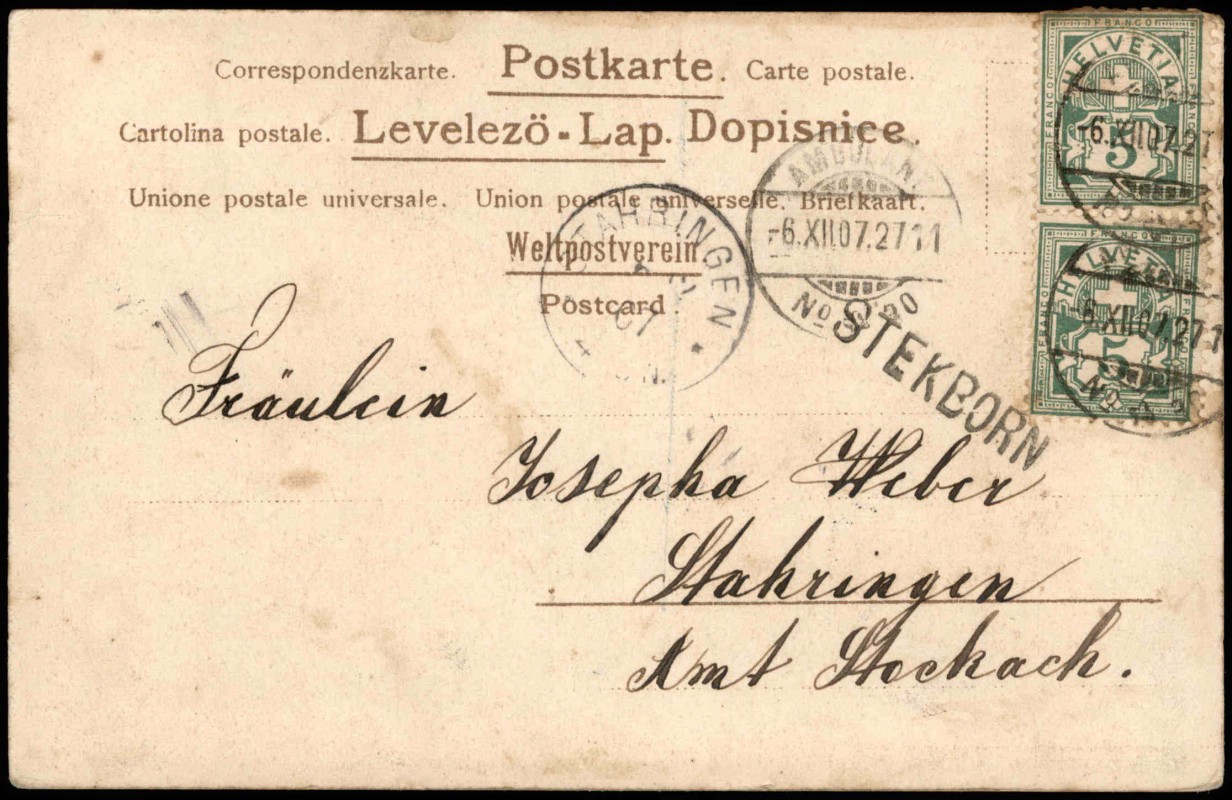 Correspondenzkarte. Postkarte. Carte postale.
Cartolina postale. Levelezö-Lap. Dopisnice.
Unione postale universale. Union postale universelle. Briefkaart.
Weltpostverein.
Postcard.
FRANCO
HELVETIA
FRANCO
FRANCO
5
-6.XII.07.27
FRANCO
HELVETIA
FRANCO
FRANCO
5
-6.XII.07.271
STAHRINGEN
07
AMBULANT
-6.XII.07.2711
No
STEKBORN
Fräulein
Josepha Weber
Stahringen
Amt Stockach.